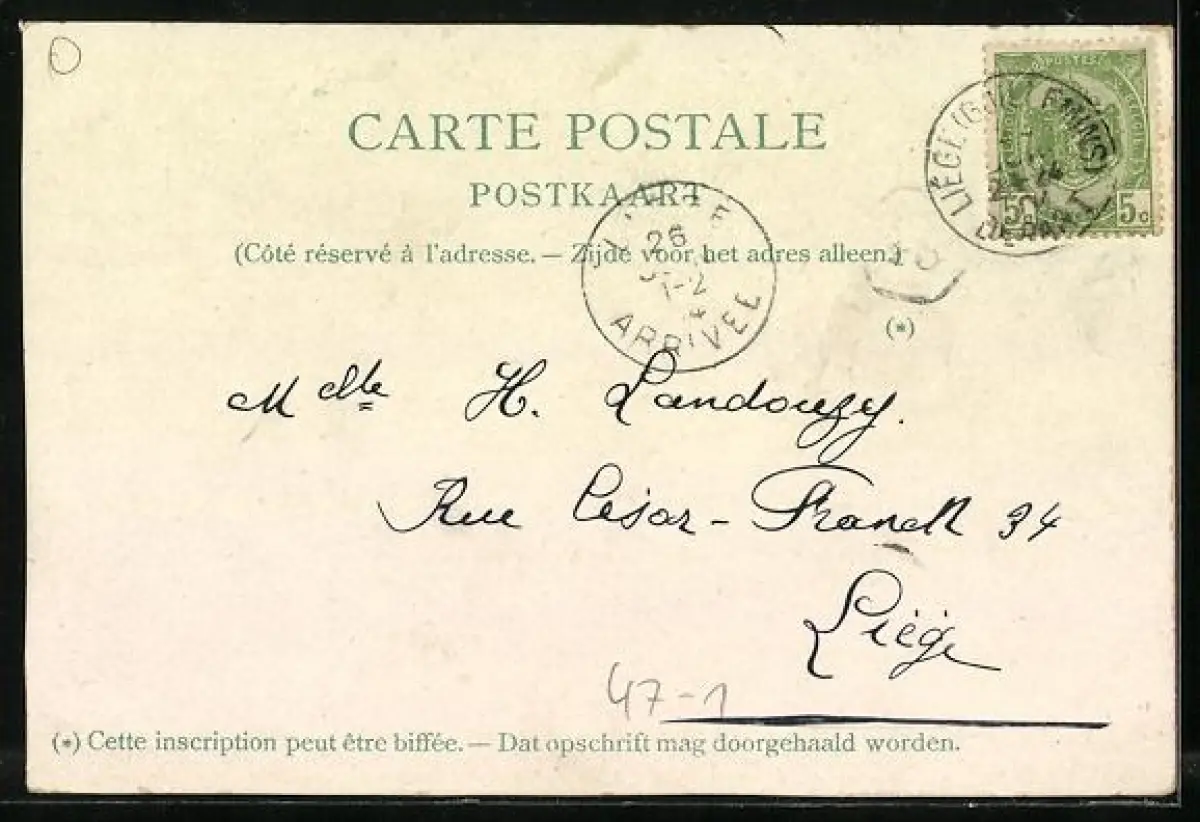 CARTE POSTALE
POSTKAART
(Côté réservé à l'adresse. — Zijde voor het adres alleen.)
(*)
POSTES
5 5c
26
1-2
ARRIVÉE
Melle H. Landouzy.
Rue César-Franck 34
Liége
47-1
(*) Cette inscription peut être biffée. — Dat opschrift mag doorgehaald worden.